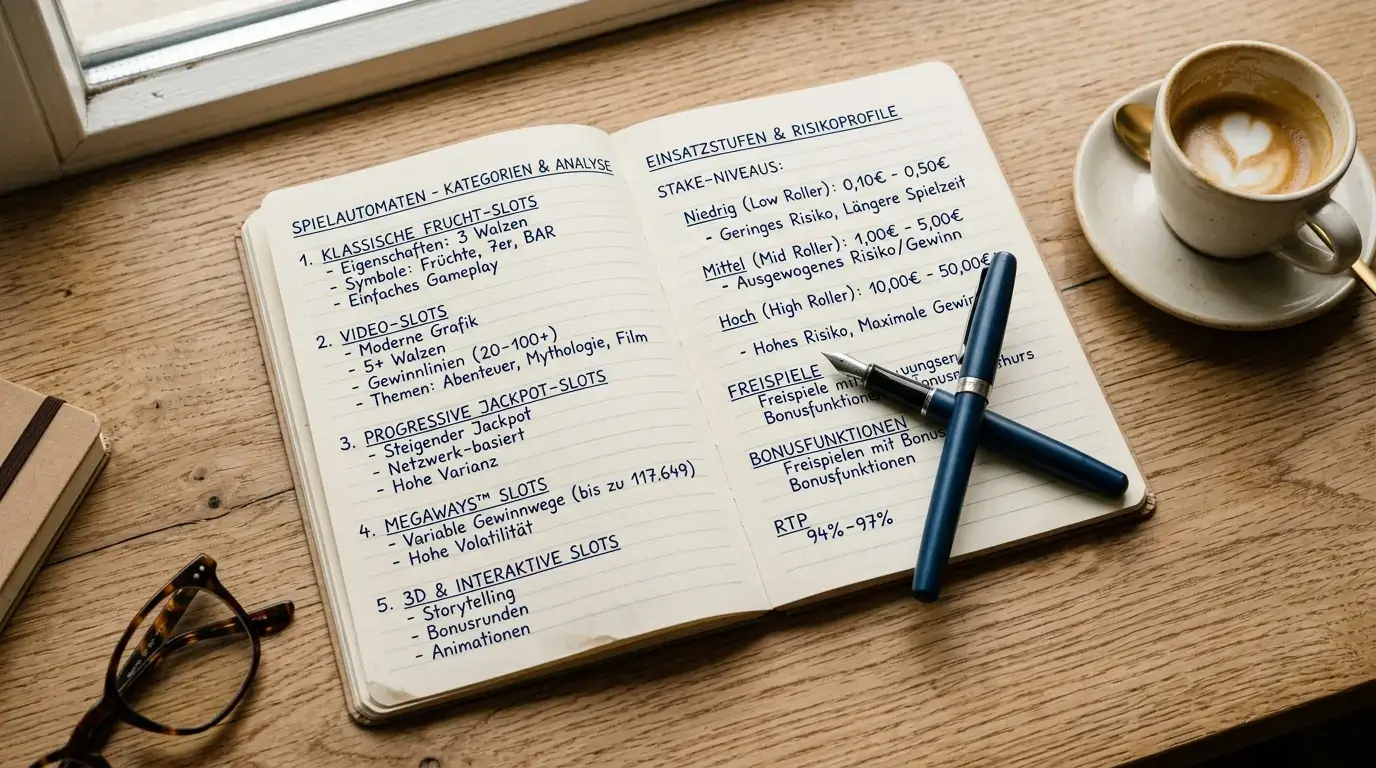 SPIELAUTOMATEN - KATEGORIEN & ANALYSE
1. KLASSISCHE FRUCHT-SLOTS
- Eigenschaften: 3 Walzen
- Symbole: Früchte, 7er, BAR
- Einfaches Gameplay
2. VIDEO-SLOTS
- Moderne Grafik
- 5+ Walzen
- Gewinnlinien (20-100+)
- Themen: Abenteuer, Mythologie, Film
3. PROGRESSIVE JACKPOT-SLOTS
- Steigender Jackpot
- Netzwerk-basiert
- Hohe Varianz
4. MEGAWAYS™ SLOTS
- Variable Gewinnwege (bis zu 117.649)
- Hohe Volatilität
5. 3D & INTERAKTIVE SLOTS
- Storytelling
- Bonusrunden
- Animationen
EINSATZSTUFEN & RISIKOPROFILE
STAKE-NIVEAUS:
Niedrig (Low Roller): 0,10€ - 0,50€
- Geringes Risiko, Längere Spielzeit
Mittel (Mid Roller): 1,00€ - 5,00€
- Ausgewogenes Risiko/Gewinn
Hoch (High Roller): 10,00€ - 50,00€
- Hohes Risiko, Maximale
FREISPIELE
Freispiele mit
BONUSFUNKTIONEN
Freispielen mit
Bonusfunktionen
RTP
94%-97%